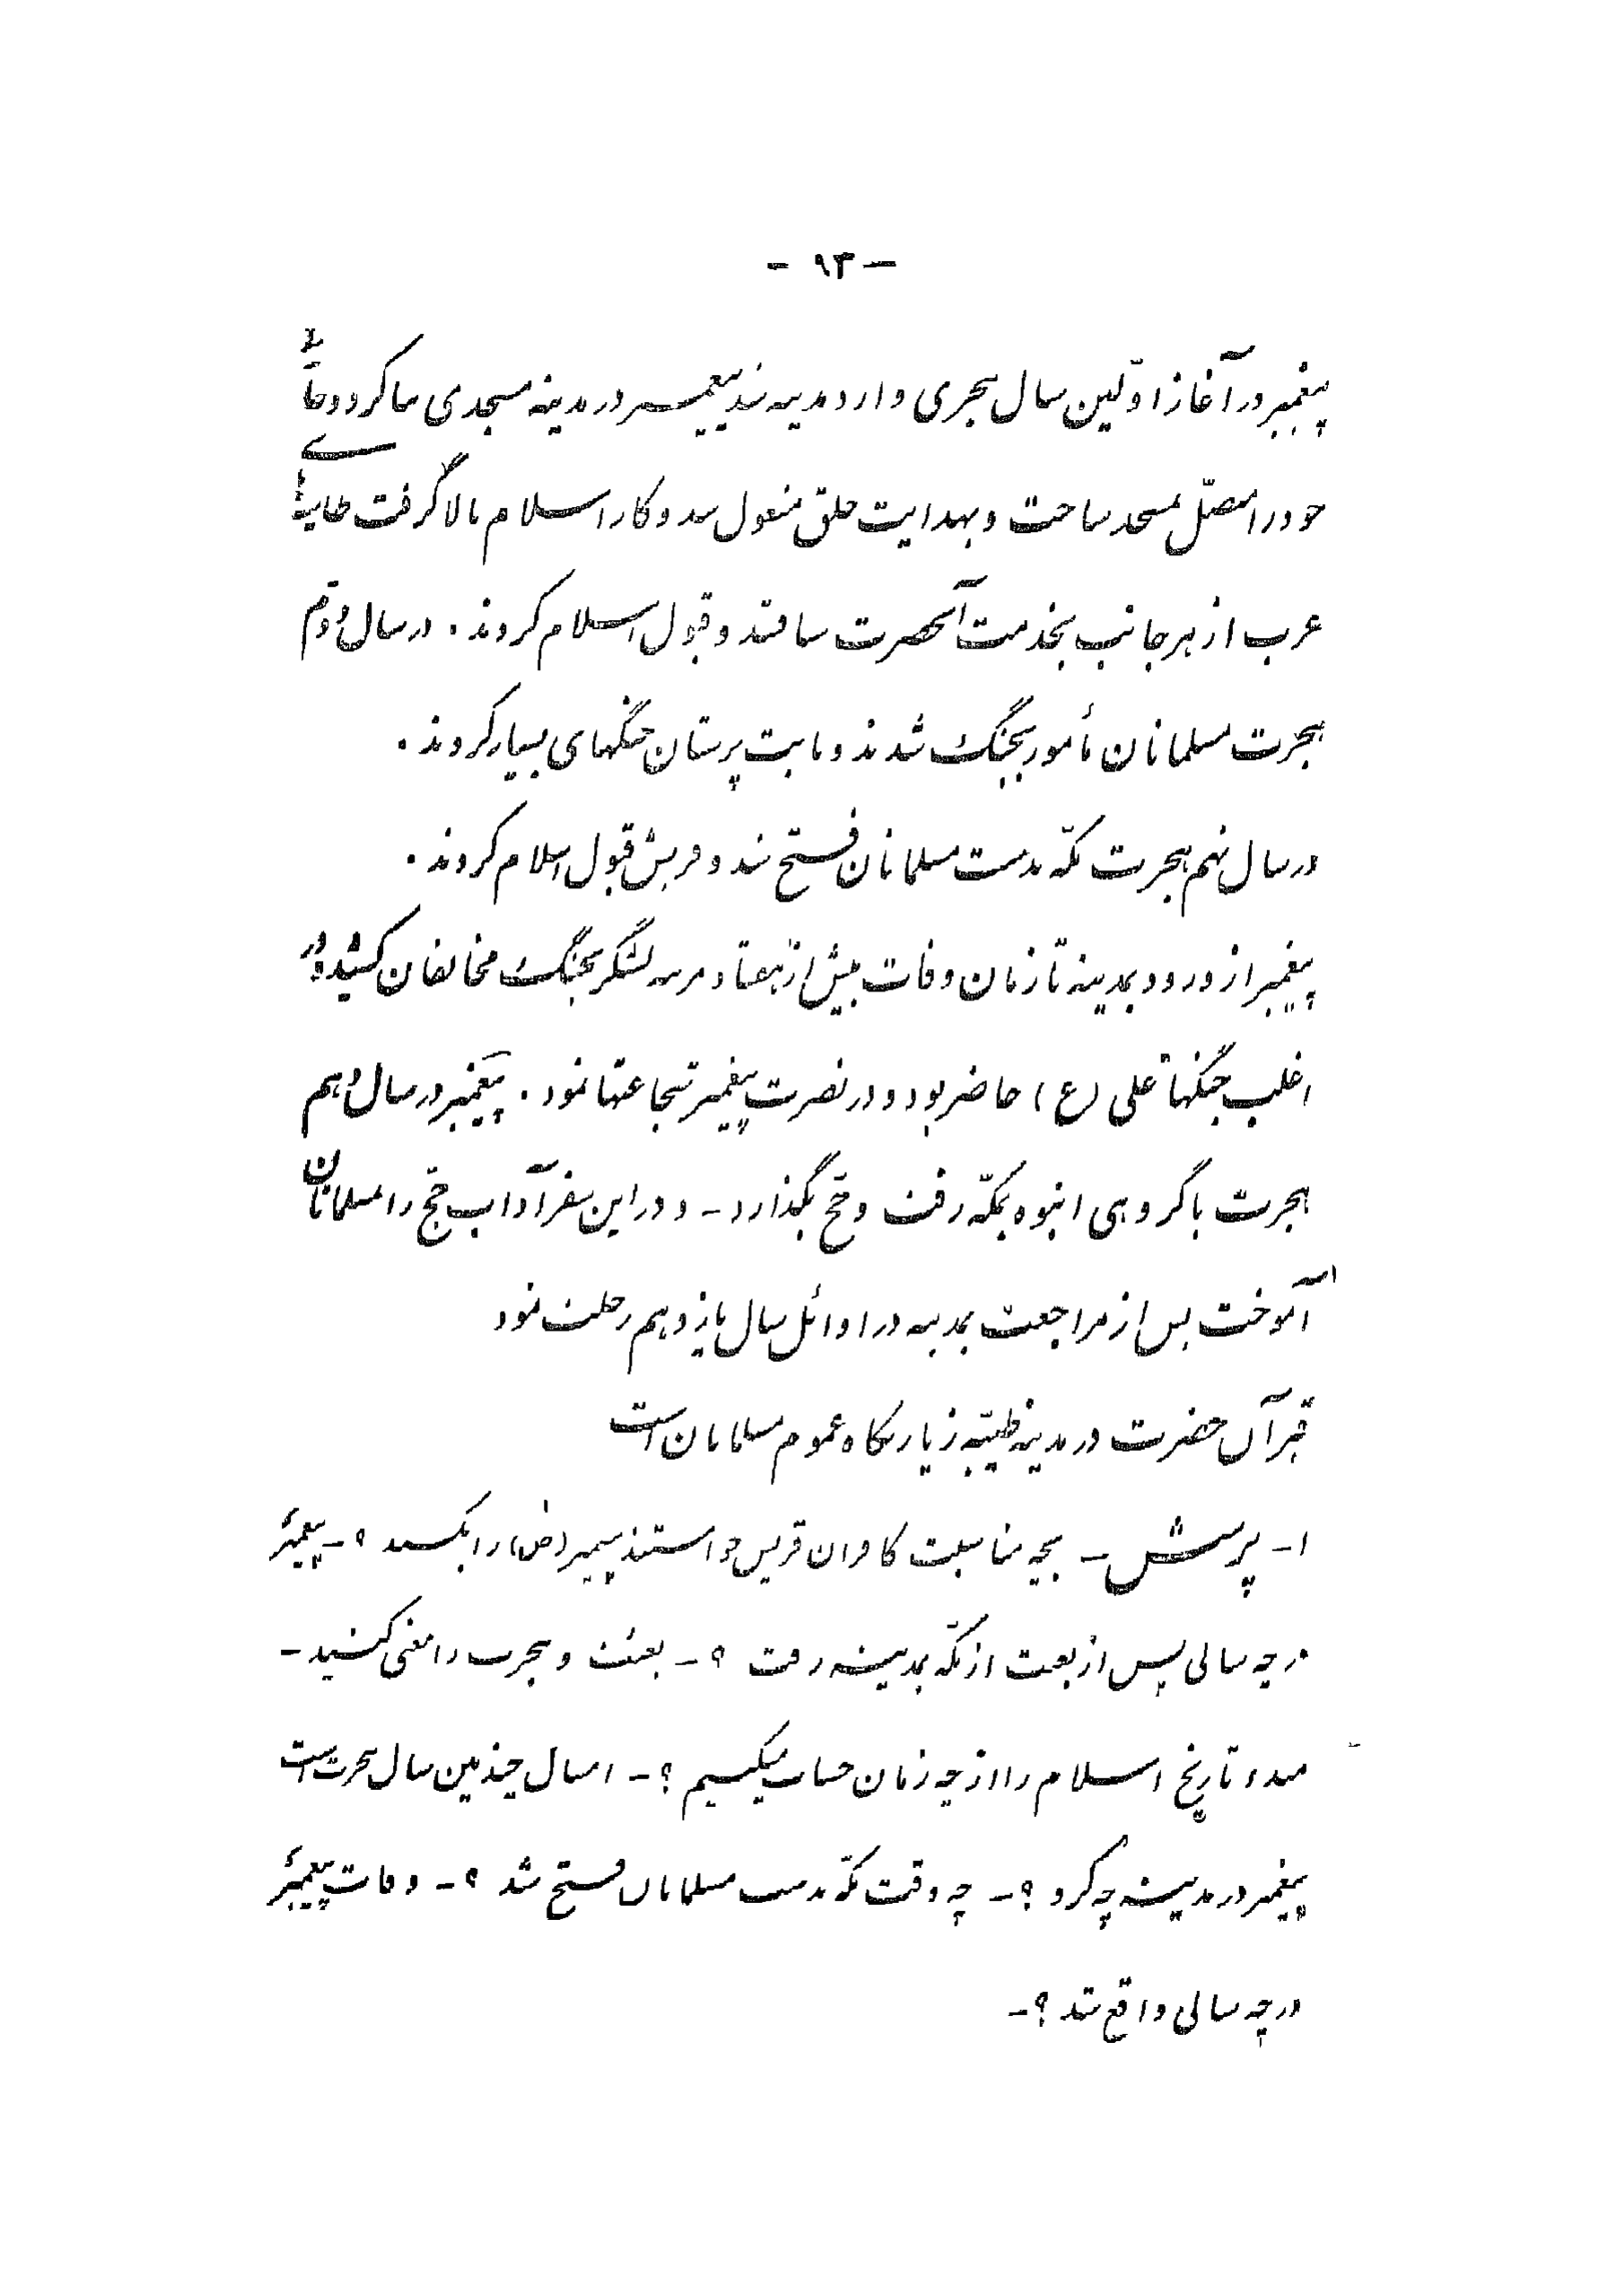 - ۹۳ -
پیغمبر در آغاز اوّلین سال هجری وارد مدینه شد پیغمبر در مدینه مسجدی بنا کرد و خانهٔ
خود را متصّل بمسجد ساخت و بهدایت خلق مشغول شد و کار اسلام بالا گرفت طایفه‌های
عرب از هر جانب بخدمت آنحضرت شتافتند و قبول اسلام کردند . در سال دوّم
هجرت مسلمانان مأمور بجنگ شدند و با بت پرستان جنگهای بسیار کردند .
در سال نهم هجرت مکّه بدست مسلمانان فتح شد و قریش قبول اسلام کردند .
پیغمبر از ورود بمدینه تا زمان وفات بیش از هفتاد مرتبه لشگر بجنگ مخالفان کشید و در
اغلب جنگها علی (ع) حاضر بود و در نصرت پیغمبر شجاعتها نمود . پیغمبر در سال دهم
هجرت با گروهی انبوه بمکّه رفت و حجّ بگذارد - و در این سفر آداب حجّ را بمسلمانان
آموخت پس از مراجعت بمدینه در اوائل سال یازدهم رحلت نمود
قبر آن حضرت در مدینه طیّبه زیارتگاه عموم مسلمانان است
۱- پرسش - بچه مناسبت کافران قریش خواستند پیغمبر (ص) را بکشند ؟ - پیغمبر
در چه سالی پس از بعثت از مکّه بمدینه رفت ؟ - بعثت و هجرت را معنی کنید -
مبدء تاریخ اسلام را از چه زمان حساب میکنیم ؟ - امسال چندمین سال هجرت است
پیغمبر در مدینه چه کرد ؟ - چه وقت مکّه بدست مسلمانان فتح شد ؟ - وفات پیغمبر
در چه سالی واقع شد ؟ -